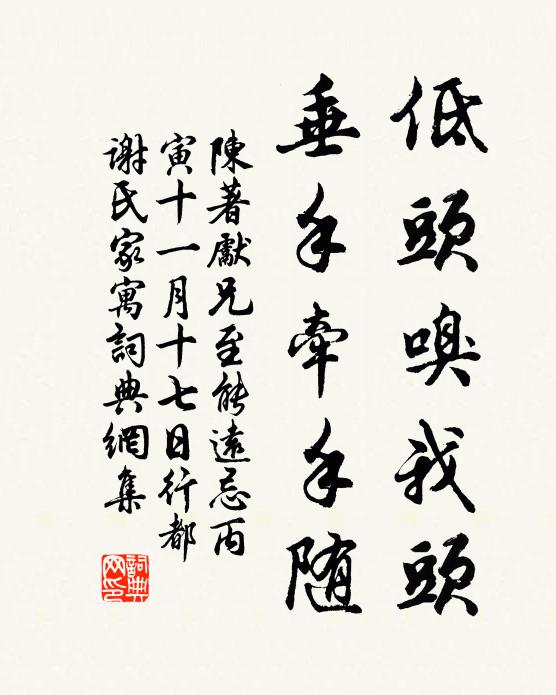 低頭嗅我頭
垂手牽手随
陳著獻兄至能遠忌丙
寅十一月十七日行都
謝氏家寓詞典網集
詞典
网印